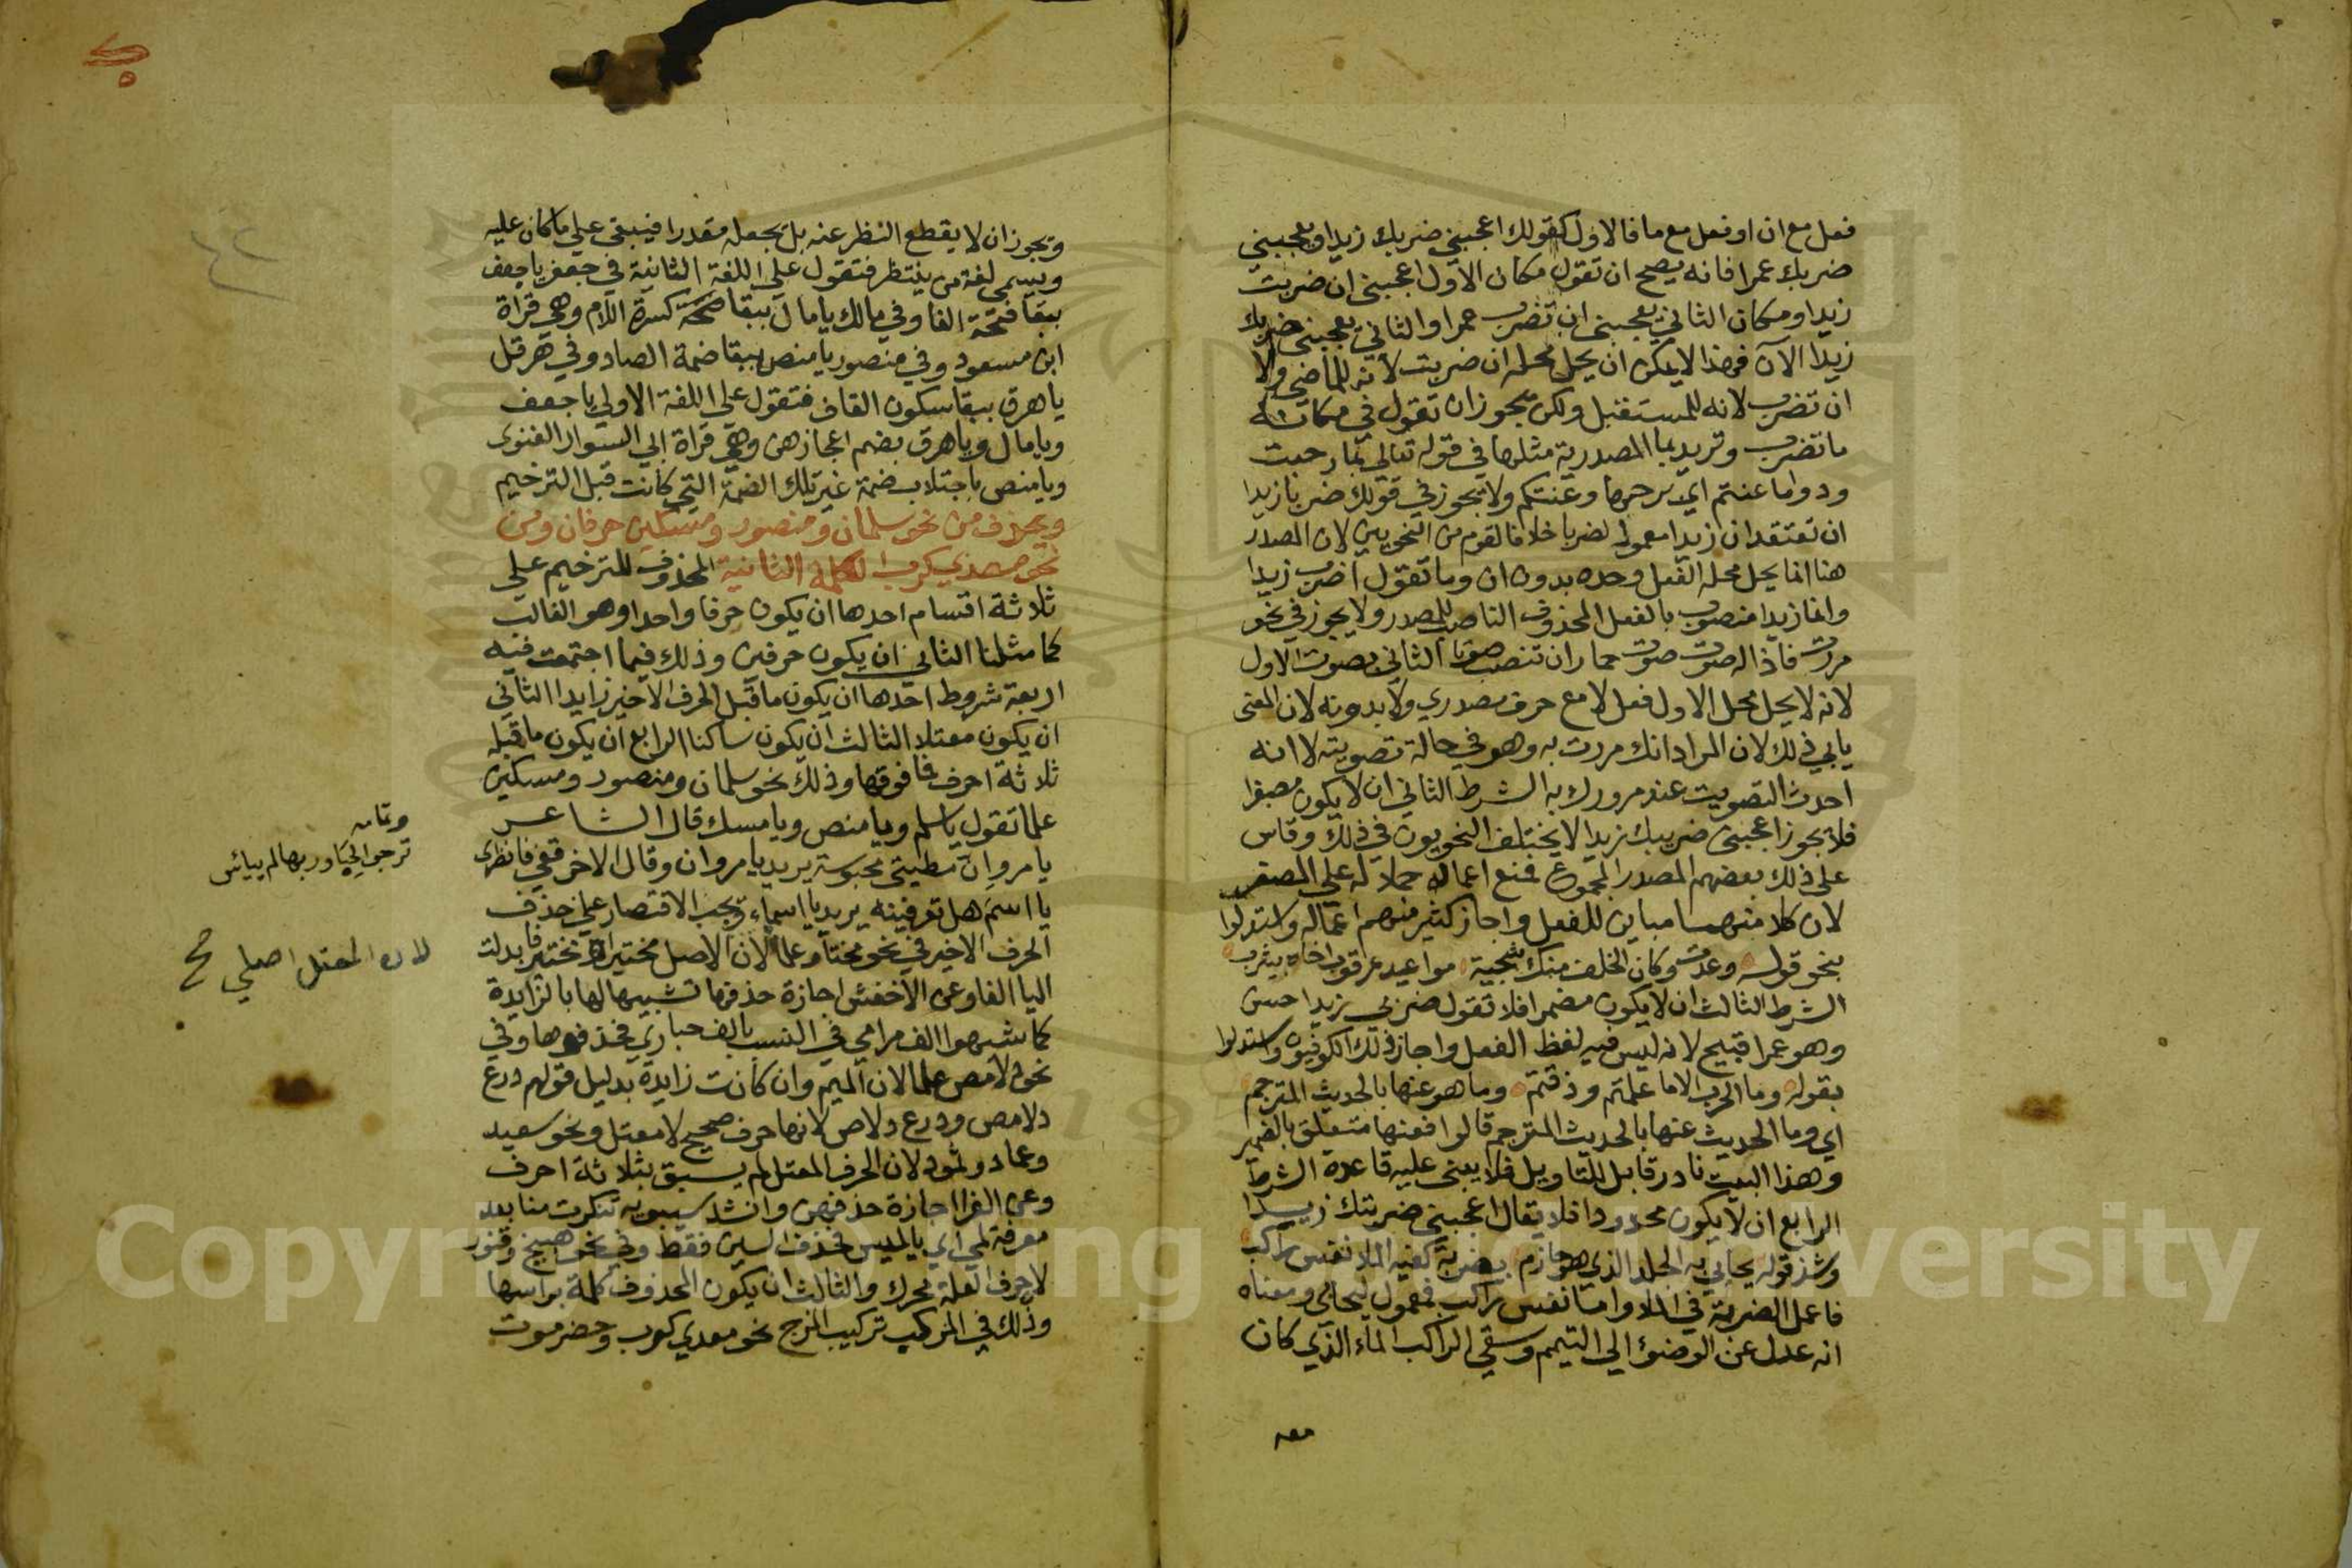 فعل مع ان او فعل مع ما فالاول كقولك اعجبني ضربك زيدا ويعجبني
ضربك عمرا فانه يصح ان تقول مكان الاول اعجبني ان ضربت
زيدا ومكان الثاني يعجبني ان تضرب عمرا والثاني يعجبني ضربك
زيدا الآن فهذا لايمكن ان يحل محله ان ضربت لانه للماضي ولا
ان تضرب لانه للمستقبل ولكن يجوز ان تقول في مكانه
ما تضرب وتريد بما المصدرية مثلها في قوله تعالي بما رحبت
ودوا ما عنتم اي برحبها وعنتكم ولا يجوز في قولك ضربا زيدا
ان تعتقد ان زيدا معمول لضربا خلافا لقوم من النحويين لان المصدر
هنا انما يحل محله الفعل وحده بدون ان وما تقول اضرب زيدا
وانما زيدا منصوب بالفعل المحذوف الناصب للمصدر ولا يجوز في نحو
مررت فاذا له صوت صوت حمار ان تنصب صوتا الثاني بصوت الاول
لانه لا يحل محل الاول فعل لا مع حرف مصدري ولا بدونه لان المعنى
يابي ذلك لان المراد انك مررت به وهو في حالة تصويته لا انه
احدث التصويت عند مرورك به الشرط الثاني ان لا يكون مصغرا
فلا يجوز اعجبني ضريبك زيدا لا يختلف النحويون في ذلك وقاس
على ذلك بعضهم المصدر المجموع فمنع اعماله حملا له علي المصغر
لان كلا منهما مباين للفعل واجاز كثير منهم اعماله واستدلوا
بنحو قوله وعدت وكان الخلف منك سجية مواعيد عرقوب اخاه بيثرب
الشرط الثالث ان لا يكون مضمرا فلا تقول ضربي زيدا حسن
وهو عمرا قبيح لانه ليس فيه لفظ الفعل واجاز ذلك الكوفيون واستدلوا
بقوله وما الحرب الا ما علمتم وذقتم وما هو عنها بالحديث المترجم
اي وما الحديث عنها بالحديث المترجم قالوا فعنها متعلق بالضمير
وهذا البيت نادر قابل للتاويل فلا يبنى عليه قاعدة الشرط
الرابع ان لا يكون محدودا فلا يقال اعجبني ضربتك زيدا
وشذ قوله يحايي به الجلد الذي هو حازم بضربة كفيه الملا نفس راكب
فاعمل الضربة في الملا واما نفس راكب فمعمول ليحايي ومعناه
انه عدل عن الوضوء الي التيمم وسقي الراكب الماء الذي كان
معه
ويجوز ان لا يقطع النظر عنه بل يجعله مقدرا فيبقي علي ما كان عليه
ويسمي لغة من ينتظر فتقول علي اللغة الثانية في جعفر يا جعف
ببقا فتحة الفا وفي مالك يا مال ببقا كسرة اللام وهي قراة
ابن مسعود وفي منصور يا منص ببقا ضمة الصاد وفي هرقل
يا هرق ببقا سكون القاف فتقول علي اللغة الاولي يا جعف
ويا مال ويا هرق بضم اعجازهن وهي قراة ابي السوار الغنوي
ويا منص باجتلاب ضمة غير تلك الضمة التي كانت قبل الترخيم
ويحذف من نحو سلمان ومنصور ومسكين حرفان ومن
نحو معدي كرب الكلمة الثانية المحذوف للترخيم علي
ثلاثة اقسام احدها ان يكون حرفا واحدا وهو الغالب
كما مثلنا الثاني ان يكون حرفين وذلك فيما اجتمعت فيه
اربعة شروط احدها ان يكون ما قبل الحرف الاخير زايدا الثاني
ان يكون معتلا الثالث ان يكون ساكنا الرابع ان يكون ما قبله
ثلاثة احرف فما فوقها وذلك نحو سلمان ومنصور ومسكين
علما تقول يا سلم ويا منص ويا مسك قال الشاعر
يا مروان مطيتي محبوسة يريد يا مروان وقال الاخر قفي فانظري
يا اسم هل تعرفينه يريد يا اسماء ويجب الاقتصار علي حذف
الحرف الاخير في نحو مختار علما لان الاصل مختير او مختير فابدلت
اليا الفا وعن الاخفش اجازة حذفها تشبيها لها بالزايدة
كما شبهوا الف مرامي في النسب بالف حباري فحذفوها وفي
نحو دلامص علما لان الميم وان كانت زايدة بدليل قولهم درع
دلامص ودرع دلاص لانها حرف صحيح لا معتل ونحو سعيد
وعماد وثمود لان الحرف المعتل لم يسبق بثلاثة احرف
وعن الفرا اجازة حذفهن وانشد سيبويه تنكرت منا بعد
معرفة لمي اي يا لميس فحذف السين فقط وفي نحو هبيخ وقنور
لان حرف العلة محرك والثالث ان يكون المحذوف كلمة براسها
وذلك في المركب تركيب المزج نحو معدي كرب وحضرموت
وتمامه
ترجو الحباء وربها لم ييائس
لان المعتل اصلي صح